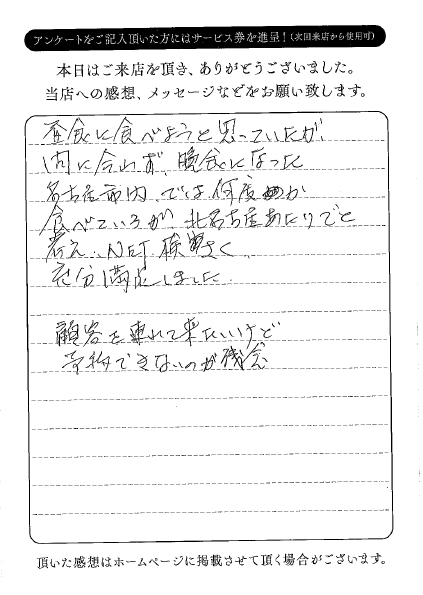 アンケートをご記入頂いた方にはサービス券を進呈！（次回来店から使用可）
本日はご来店を頂き、ありがとうございました。
当店への感想、メッセージなどをお願い致します。
昼食に食べようと思っていたが
間に合わず、晩食になった
名古屋市内、では何度か
食べているが、北名古屋あたりでと
考え、NET検さく、
充分満足しました
顧客を連れて来たいけど
予約できないのが残念
頂いた感想はホームページに掲載させて頂く場合がございます。